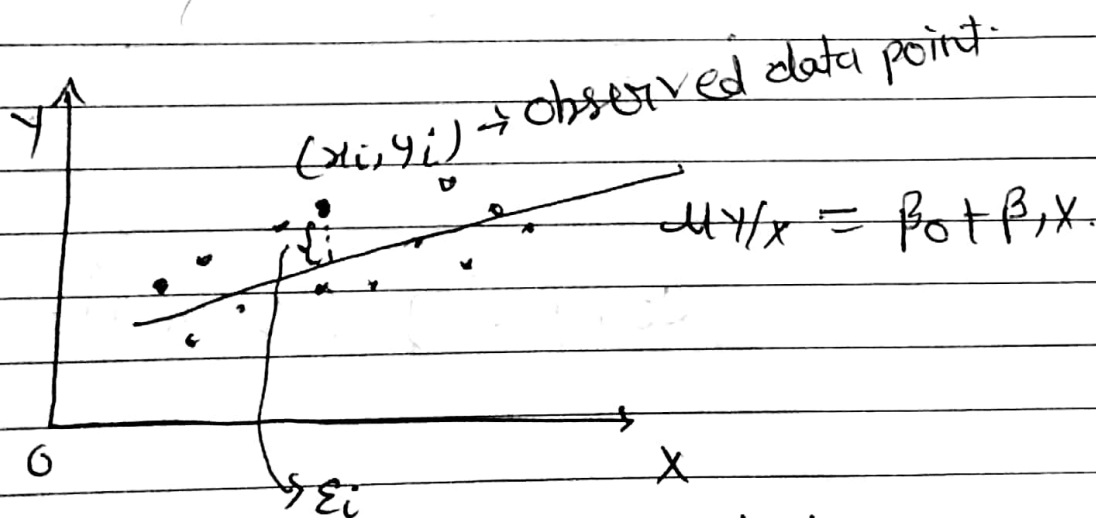 (xi, yi) → observed data point.
Y
μY/x = β0 + β1X.
εi
0
X
εi